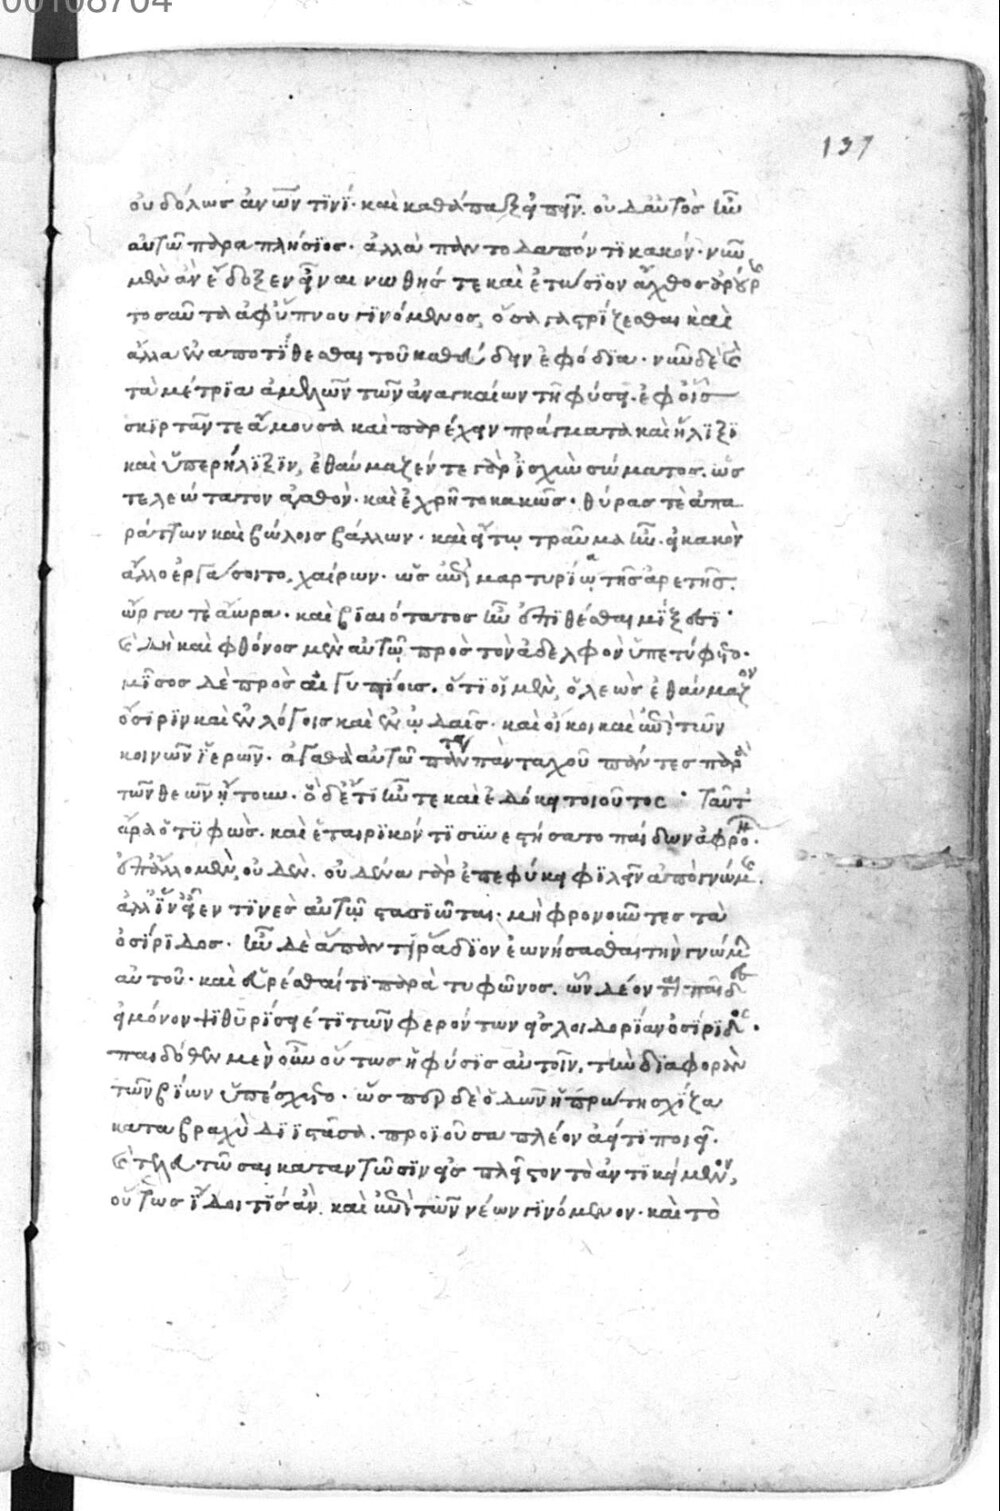 00108704
137
οὐδ' ὅλως ἀνὼν τινί· καὶ καθάπαξ εἰπεῖν. οὐδ' αὐτὸς ἦν
αὑτῷ παραπλήσιος· ἀλλὰ παντοδαπόν τι κακόν· νῦν
μὲν ἂν ἔδοξεν εἶναι νωθής τε καὶ ἐτώσιον ἄχθος ἀρούρης
τοσαῦτα ἀφύπνου γινόμενος, ὅσα γαστρίζεσθαι καὶ
ἄλλα ἐναποτίθεσθαι τοῦ καθεύδειν ἐφόδια· νῦν δὲ καὶ
τὰ μέτρια ἀμελῶν τῶν ἀναγκαίων τῇ φύσει· ἐφ' οἷς
σκιρτᾶν τε ἄμουσα καὶ παρέχειν πράγματα καὶ ἥλιξι
καὶ ὑπερήλιξιν, ἐθαύμαζέν τε γὰρ ἰσχὺν σώματος. ὡς
τελεώτατον ἀγαθόν· καὶ ἐχρῆτο κακῶς· θύρας τὲ ἀπα
ράττων καὶ βώλοις βάλλων· καὶ εἴ τῳ τραῦμα ἦν· ἢ κακὸν
ἄλλο ἐργάσοιτο, χαίρων· ὡς ἐπὶ μαρτυρίᾳ τῆς ἀρετῆς.
ὤργα τὲ ἄωρα· καὶ βιαιότατος ἦν ἐπιθέσθαι μίξεσι·
καὶ δὴ καὶ φθόνος μὲν αὐτῷ πρὸς τὸν ἀδελφὸν ὑπετύφετο·
μῖσος δὲ πρὸς αἰγυπτίοις. ὅτι οἱ μὲν, ὁ λεὼς ἐθαύμαζον
ὄσιριν καὶ ἐν λόγοις καὶ ἐν ᾠδαῖς· καὶ οἴκοι καὶ ἐπὶ τῶν
κοινῶν ἱερῶν· ἀγαθὰ αὐτῷ πάντα πανταχοῦ πάντες παρὰ
τῶν θεῶν ᾔτουν· ὁ δέ ἐστι ἦν τε καὶ ἐδόκει τοιοῦτος· ταῦτ'
ἄρα ὁ τυφώς· καὶ ἑταιρικόν τι συνεστήσατο παίδων ἀφρόνων·
ἐπ' ἄλλο μὲν, οὐδέν· οὐδένα γὰρ ἐπεφύκει φιλεῖν ἀπὸ γνώμης.
ἀλλ' ἵν' εἶεν τινὲς αὐτῷ στασιῶται· μὴ φρονοῦντες τὰ
ὀσίριδος· ἦν δὲ ἅπαντι ῥᾴδιον ἐωνήσασθαι τὴν γνώμην
αὐτοῦ· καὶ εὑρέσθαί τι παρὰ τυφῶνος. ὧν δέονται παῖδες
εἰ μόνον ψιθυρίσειέ τι τῶν φερόντων εἰς λοιδορίαν ὀσίριδος·
παιδόθεν μὲν οὖν οὕτως ἡ φύσις αὐτοῖν, τὴν διαφορὰν
τῶν βίων ὑπέσχετο· ὡς περ δὲ ὁδῶν ἡ πρώτη σχίζα
κατα βραχὺ διϊστᾶσα. προϊοῦσα πλέον ἀεί τι ποιεῖ·
καὶ τελευτῶσαι καταντῶσιν εἰς πλεῖστον τὸ ἀντικείμενον,
οὕτως ἴδοι τίς ἂν. καὶ ἐπὶ τῶν νέων γινόμενον· καὶ τὸ